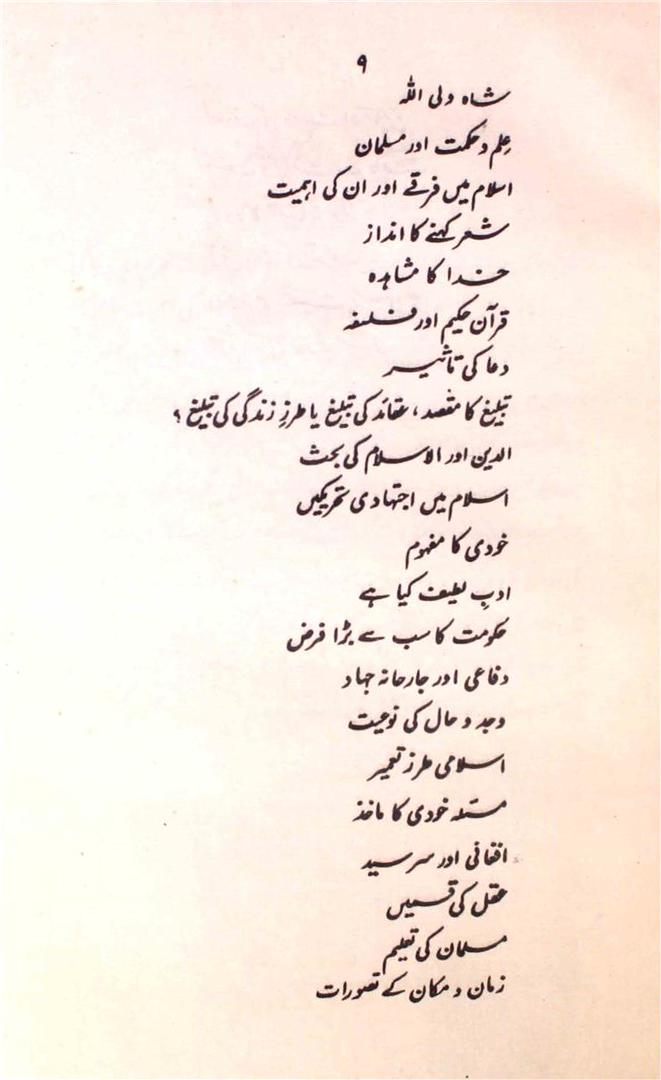 ۹
شاہ ولی اللہ
عِلم و حکمت اور مسلمان
اسلام میں فرقے اور ان کی اہمیت
شعر کہنے کا انداز
خدا کا مشاہدہ
قرآن حکیم اور فلسفہ
دعا کی تاثیر
تبلیغ کا مقصد، عقائد کی تبلیغ یا طرزِ زندگی کی تبلیغ؟
الدین اور الاسلام کی بحث
اسلام میں اجتہادی تحریکیں
خودی کا مفہوم
ادبِ لطیف کیا ہے
حکومت کا سب سے بڑا فرض
دفاعی اور جارحانہ جہاد
وجد و حال کی نوعیت
اسلامی طرز تعمیر
مسئلہ خودی کا ماخذ
افغانی اور سرسید
عقل کی قسمیں
مسلمان کی تعلیم
زمان و مکان کے تصورات